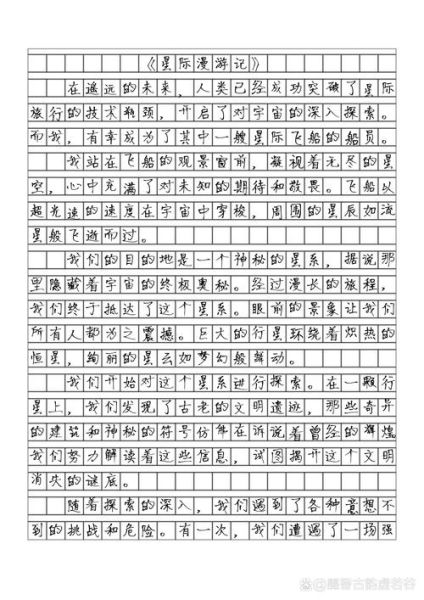 《星际漫游记》
在遥远的未来，人类已经成功突破了星际
旅行的技术瓶颈，开启了对宇宙的深入探索。
而我，有幸成为了其中一艘星际飞船的船员。
我站在飞船的观景窗前，凝视着无尽的星
空，心中充满了对未知的期待和敬畏。飞船以
超光速的速度在宇宙中穿梭，周围的星辰如流
星般飞逝而过。
我们的目的地是一个神秘的星系，据说那
里隐藏着宇宙的终极奥秘。经过漫长的旅程，
我们终于抵达了这个星系。眼前的景象让我们
所有人都为之震撼。巨大的行星环绕着炽热的
恒星，绚丽的星云如梦幻般舞动。
我们开始对这个星系进行探索。在一颗行
星上，我们发现了古老的文明遗迹，那些奇异
的建筑和神秘的符号仿佛在诉说着曾经的辉煌
我们努力解读着这些信息，试图揭开这个文明
消失的谜底。
随着探索的深入，我们遇到了各种意想不
到的挑战和危险。有一次，我们遭遇了一场强
@魔兽古韵虚若谷